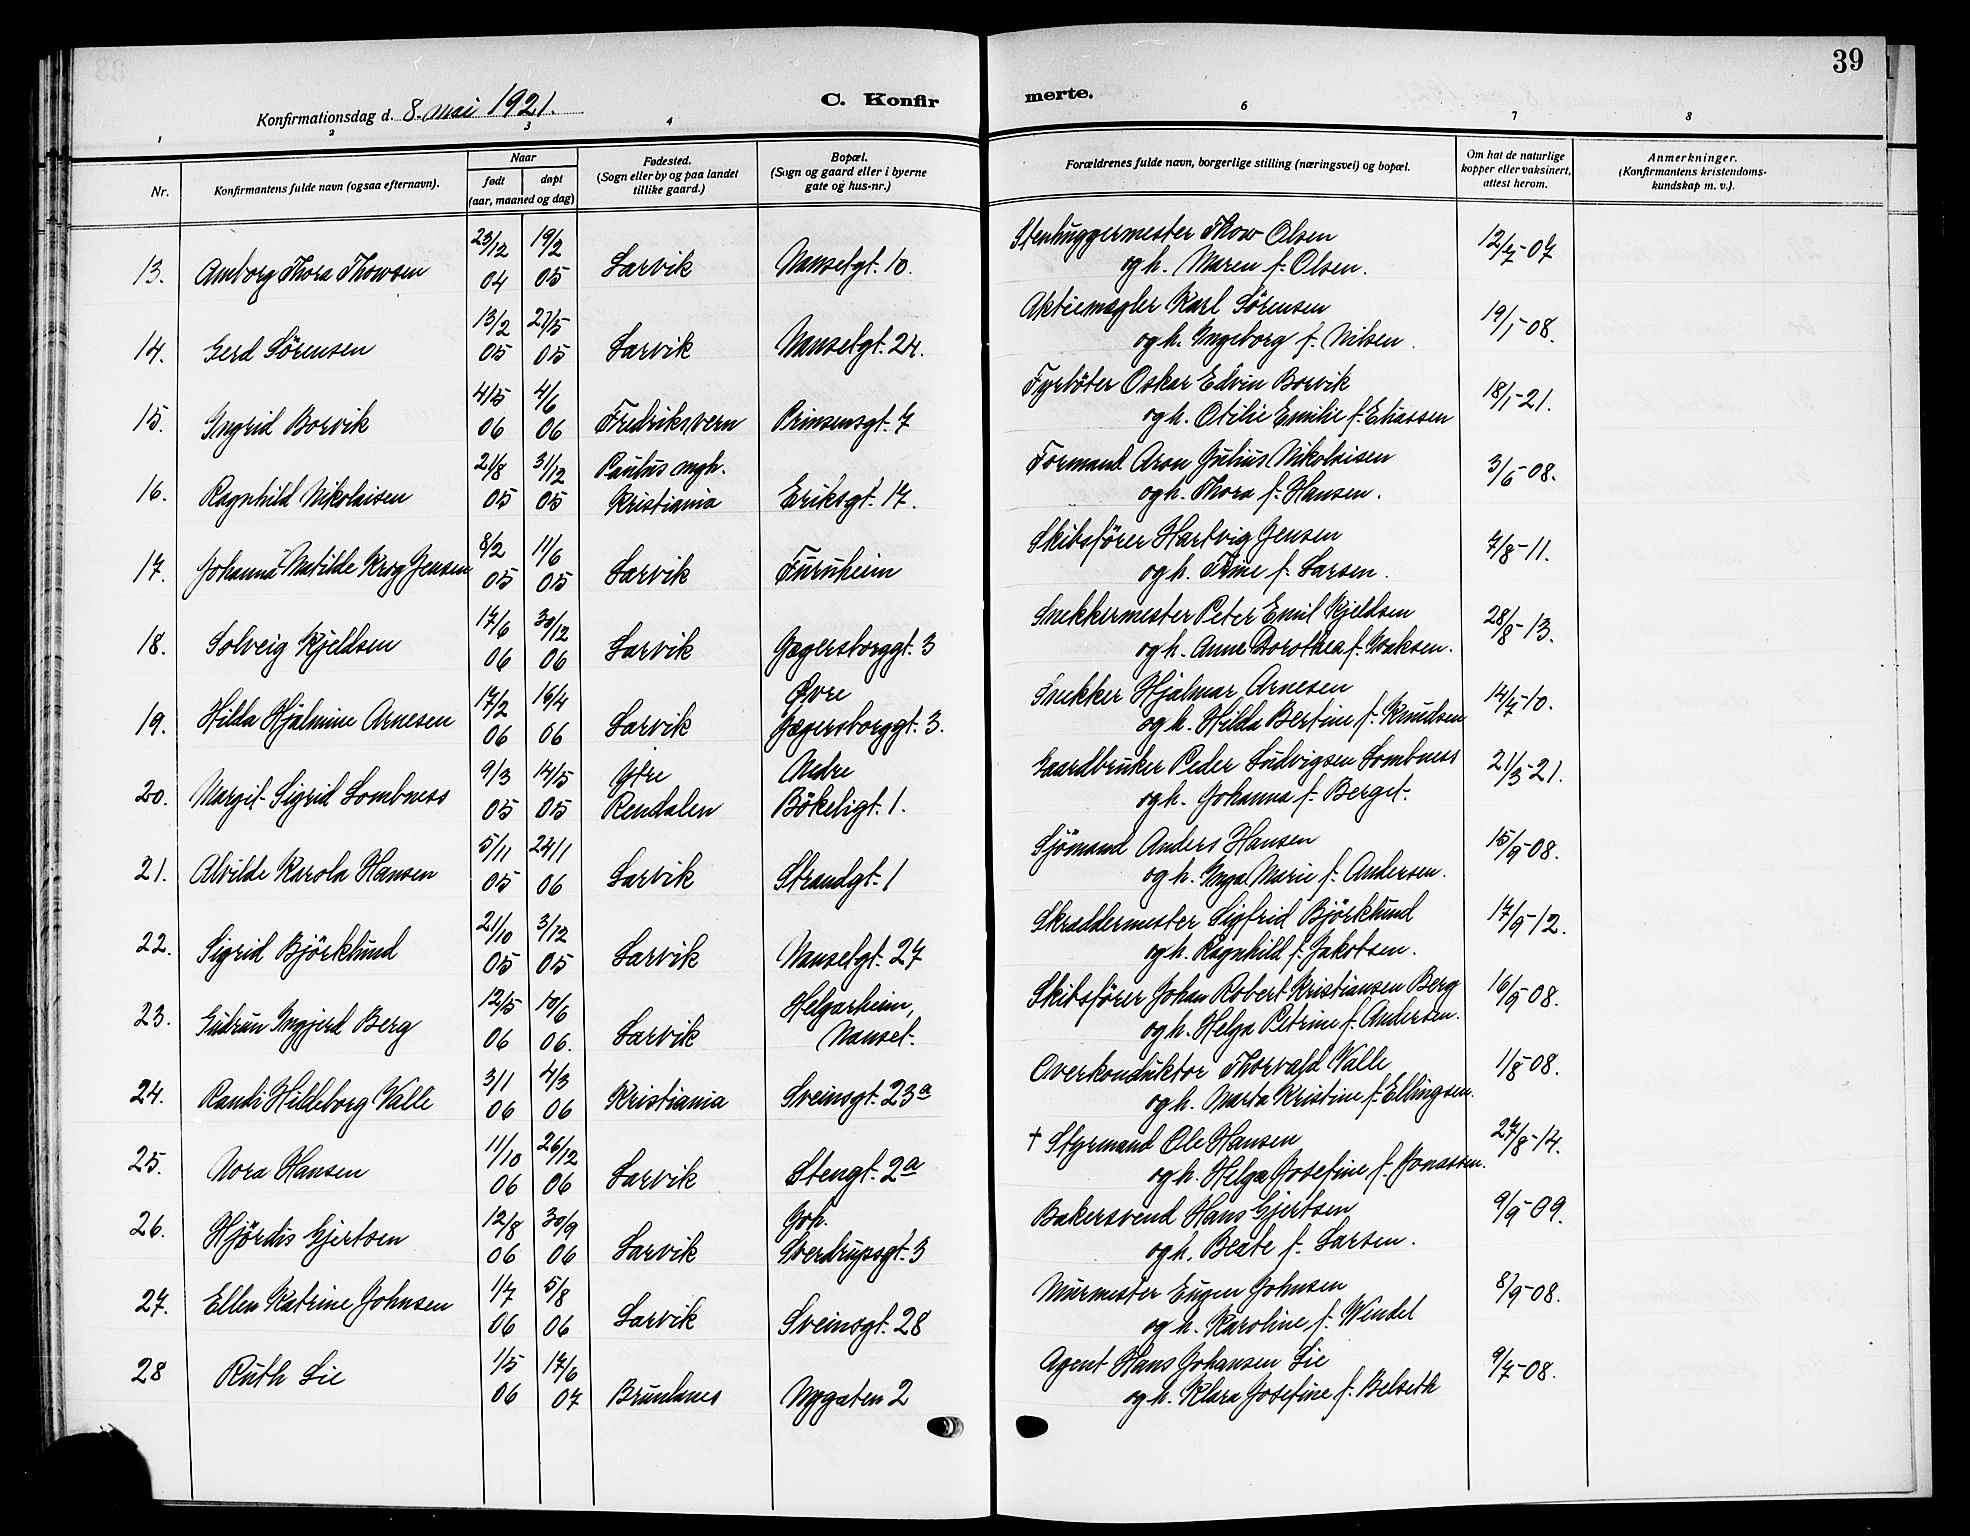 39
Konfirmationsdag d. 8. mai 1921.
C. Konfirmerte.
1 2 3 4 6 7 8
Nr.
Konfirmantens fulde navn (ogsaa efternavn).
Naar
født døpt
(aar, maaned og dag)
Fødested.
(Sogn eller by og paa landet
tillike gaard.)
Bopæl.
(Sogn og gaard eller i byerne
gate og hus-nr.)
Forældrenes fulde navn, borgerlige stilling (næringsvei) og bopæl.
Om hat de naturlige
kopper eller vaksinert,
attest herom.
Anmerkninger.
(Konfirmantens kristendoms-
kundskap m. v.).
23/12 19/2 Stenhuggermester Thow Olsen 12/7-07
13. Amborg Thora Thowsen 04 05 Larvik Nansetgt. 10. og h. Maren f. Olsen.
13/2 27/5 Aktiemægler Karl Sörensen 19/1-08.
14. Gerd Sörensen 05 05 Larvik Nansetgt. 24. og h. Ingeborg f. Nilsen.
4/5 4/6 Fyrböter Oskar Edvin Borvik 18/1-21.
15. Ingrid Borvik 06 06 Fredriksvern Prinsensgt. 7 og h. Otilie Emilie f. Eliassen
21/8 31/12 Paulus mgh. Formand Aron Julius Nikolaisen 3/6-08.
16. Ragnhild Nikolaisen 05 05 Kristiania Eriksgt. 17. og h. Thora f. Hansen.
8/2 11/6 Skibsförer Hartvig Jensen 7/8-11.
17. Johanna Matilde Krog Jensen 05 05 Larvik Furuheim og h. Trine f. Larsen.
17/6 30/12 Snekkermester Peter Emil Kjeldsen 28/8-13.
18. Solveig Kjeldsen 06 06 Larvik Jægersborggt. 3 og h. Anne Dorothea f. Isaksen.
17/2 16/4 Øvre Snekker Hjalmar Arnesen 14/7-10.
19. Hilda Hjalmine Arnesen 06 06 Larvik Jægersborggt. 3. og h. Hilda Bertine f. Knudsen
9/3 14/5 Ytre Nedre Gaardbruker Peder Ludvigsen Lombness 21/3-21.
20. Margit Sigrid Lombness 05 05 Rendalen Bökeligt. 1. og h. Johanna f. Berget.
5/11 24/1 Sjömand Anders Hansen 15/9-08.
21. Alvilde Karola Hansen 05 06 Larvik Strandgt. 1 og h. Inga Marie f. Andersen.
21/10 3/12 Skræddermester Sigfrid Björklund 17/9-12.
22. Sigrid Björklund 05 05 Larvik Nansetgt. 27 og h. Ragnhild f. Jakobsen.
12/5 10/6 Helgarheim, Skibsförer Johan Robert Kristiansen Berg 16/9-08.
23. Gudrun Ingjerd Berg 06 06. Larvik Nanset. og h. Helga Petrine f. Andersen.
3/1 4/3 Overkonduktor Thorvald Valle 1/8-08.
24. Randi Hildeborg Valle 06 06 Kristiania Sveinsgt. 23a og h. Marta Kristine f. Ellingsen.
11/10 26/12 † Styrmand Ole Hansen 27/8-14.
25. Nora Hansen 06 06 Larvik Stengt. 2a og h. Helga Josefine f. Jonassen.
12/8 30/9 Joh. Bakersvend Hans Gjertsen 9/9-09.
26. Hjördis Gjertsen 06 06 Larvik Sverdrupsgt. 3 og h. Beate f. Larsen.
1/7 5/8 Murmester Eugen Johnsen 8/9-08.
27. Ellen Katrine Johnsen 06 06 Larvik Sveinsgt. 28 og h. Karoline f. Wendel
1/5 17/6 Agent Hans Johansen Lie 9/7-08.
28 Ruth Lie 06 07 Brunlanes Nygaten 2 og h. Klara Josefine f. Belseth